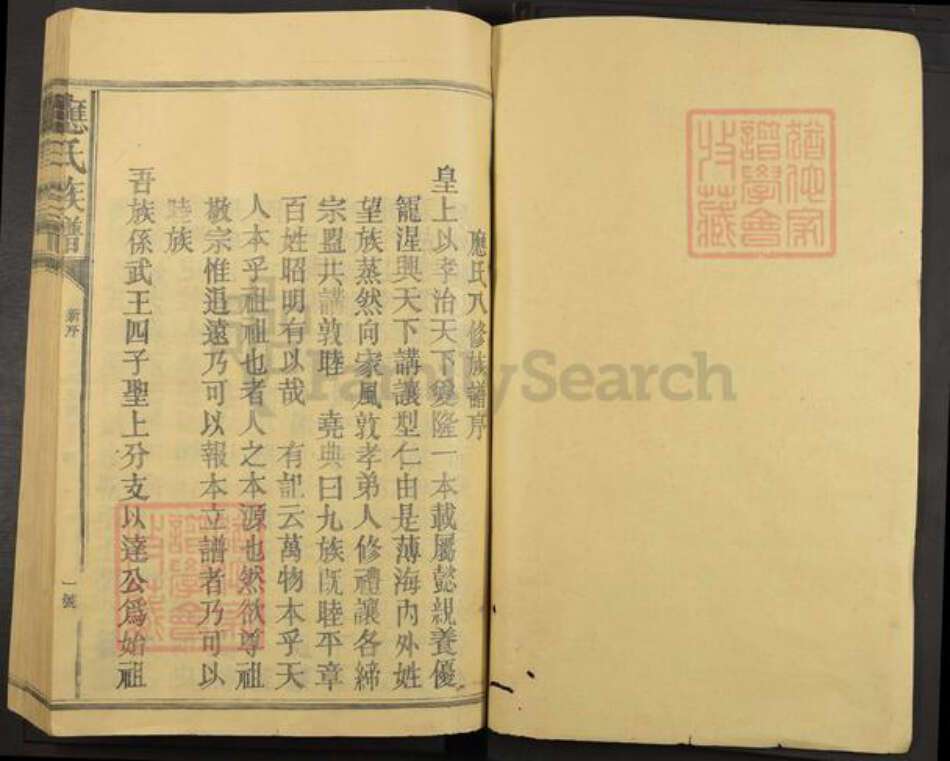 應氏八修族譜序
皇上以孝治天下變隆一本載屬懿親養優
籠涅興天下講讓型仁由是薄海內外姓
望族蒸然向家風敦孝弟人修禮讓各締
宗盟共講敦睦 堯典曰九族既睦平章
百姓昭明有以哉 有記云萬物本乎天
人本乎祖祖也者人之本源也然欲尊祖
敬宗惟追遠乃可以報本立譜者乃可以
睦族
吾族係武王四子聖上分支以達公爲始祖
應氏族譜
新序
一號
譜學會
收藏
FamilySearch